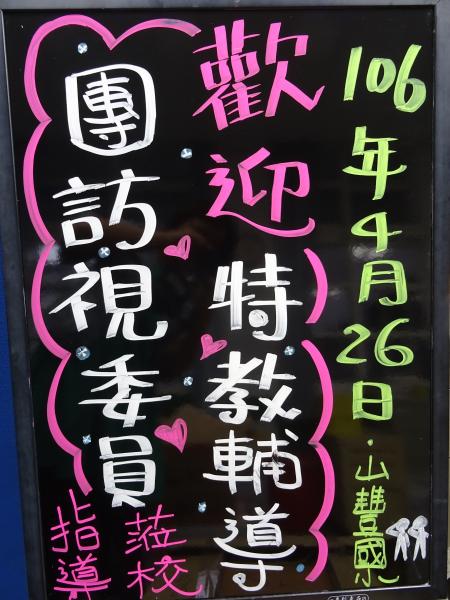 106年4月26日·山豐國小
歡迎特教輔導
團訪視委員
蒞校
指導